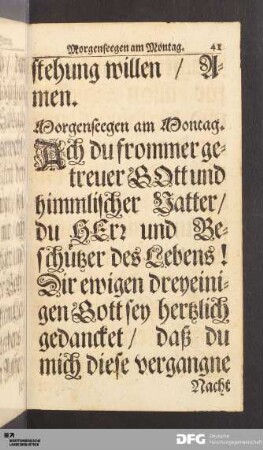 Morgenseegen am Montag. 41
stehung willen / A-
men.
Morgenseegen am Montag.
Ach du frommer ge-
treuer GOtt und
himmlischer Vatter/
du HErr und Be-
schützer des Lebens!
Dir ewigen dreyeini-
gen Gott sey hertzlich
gedancket / daß du
mich diese vergangne
Nacht
DFG